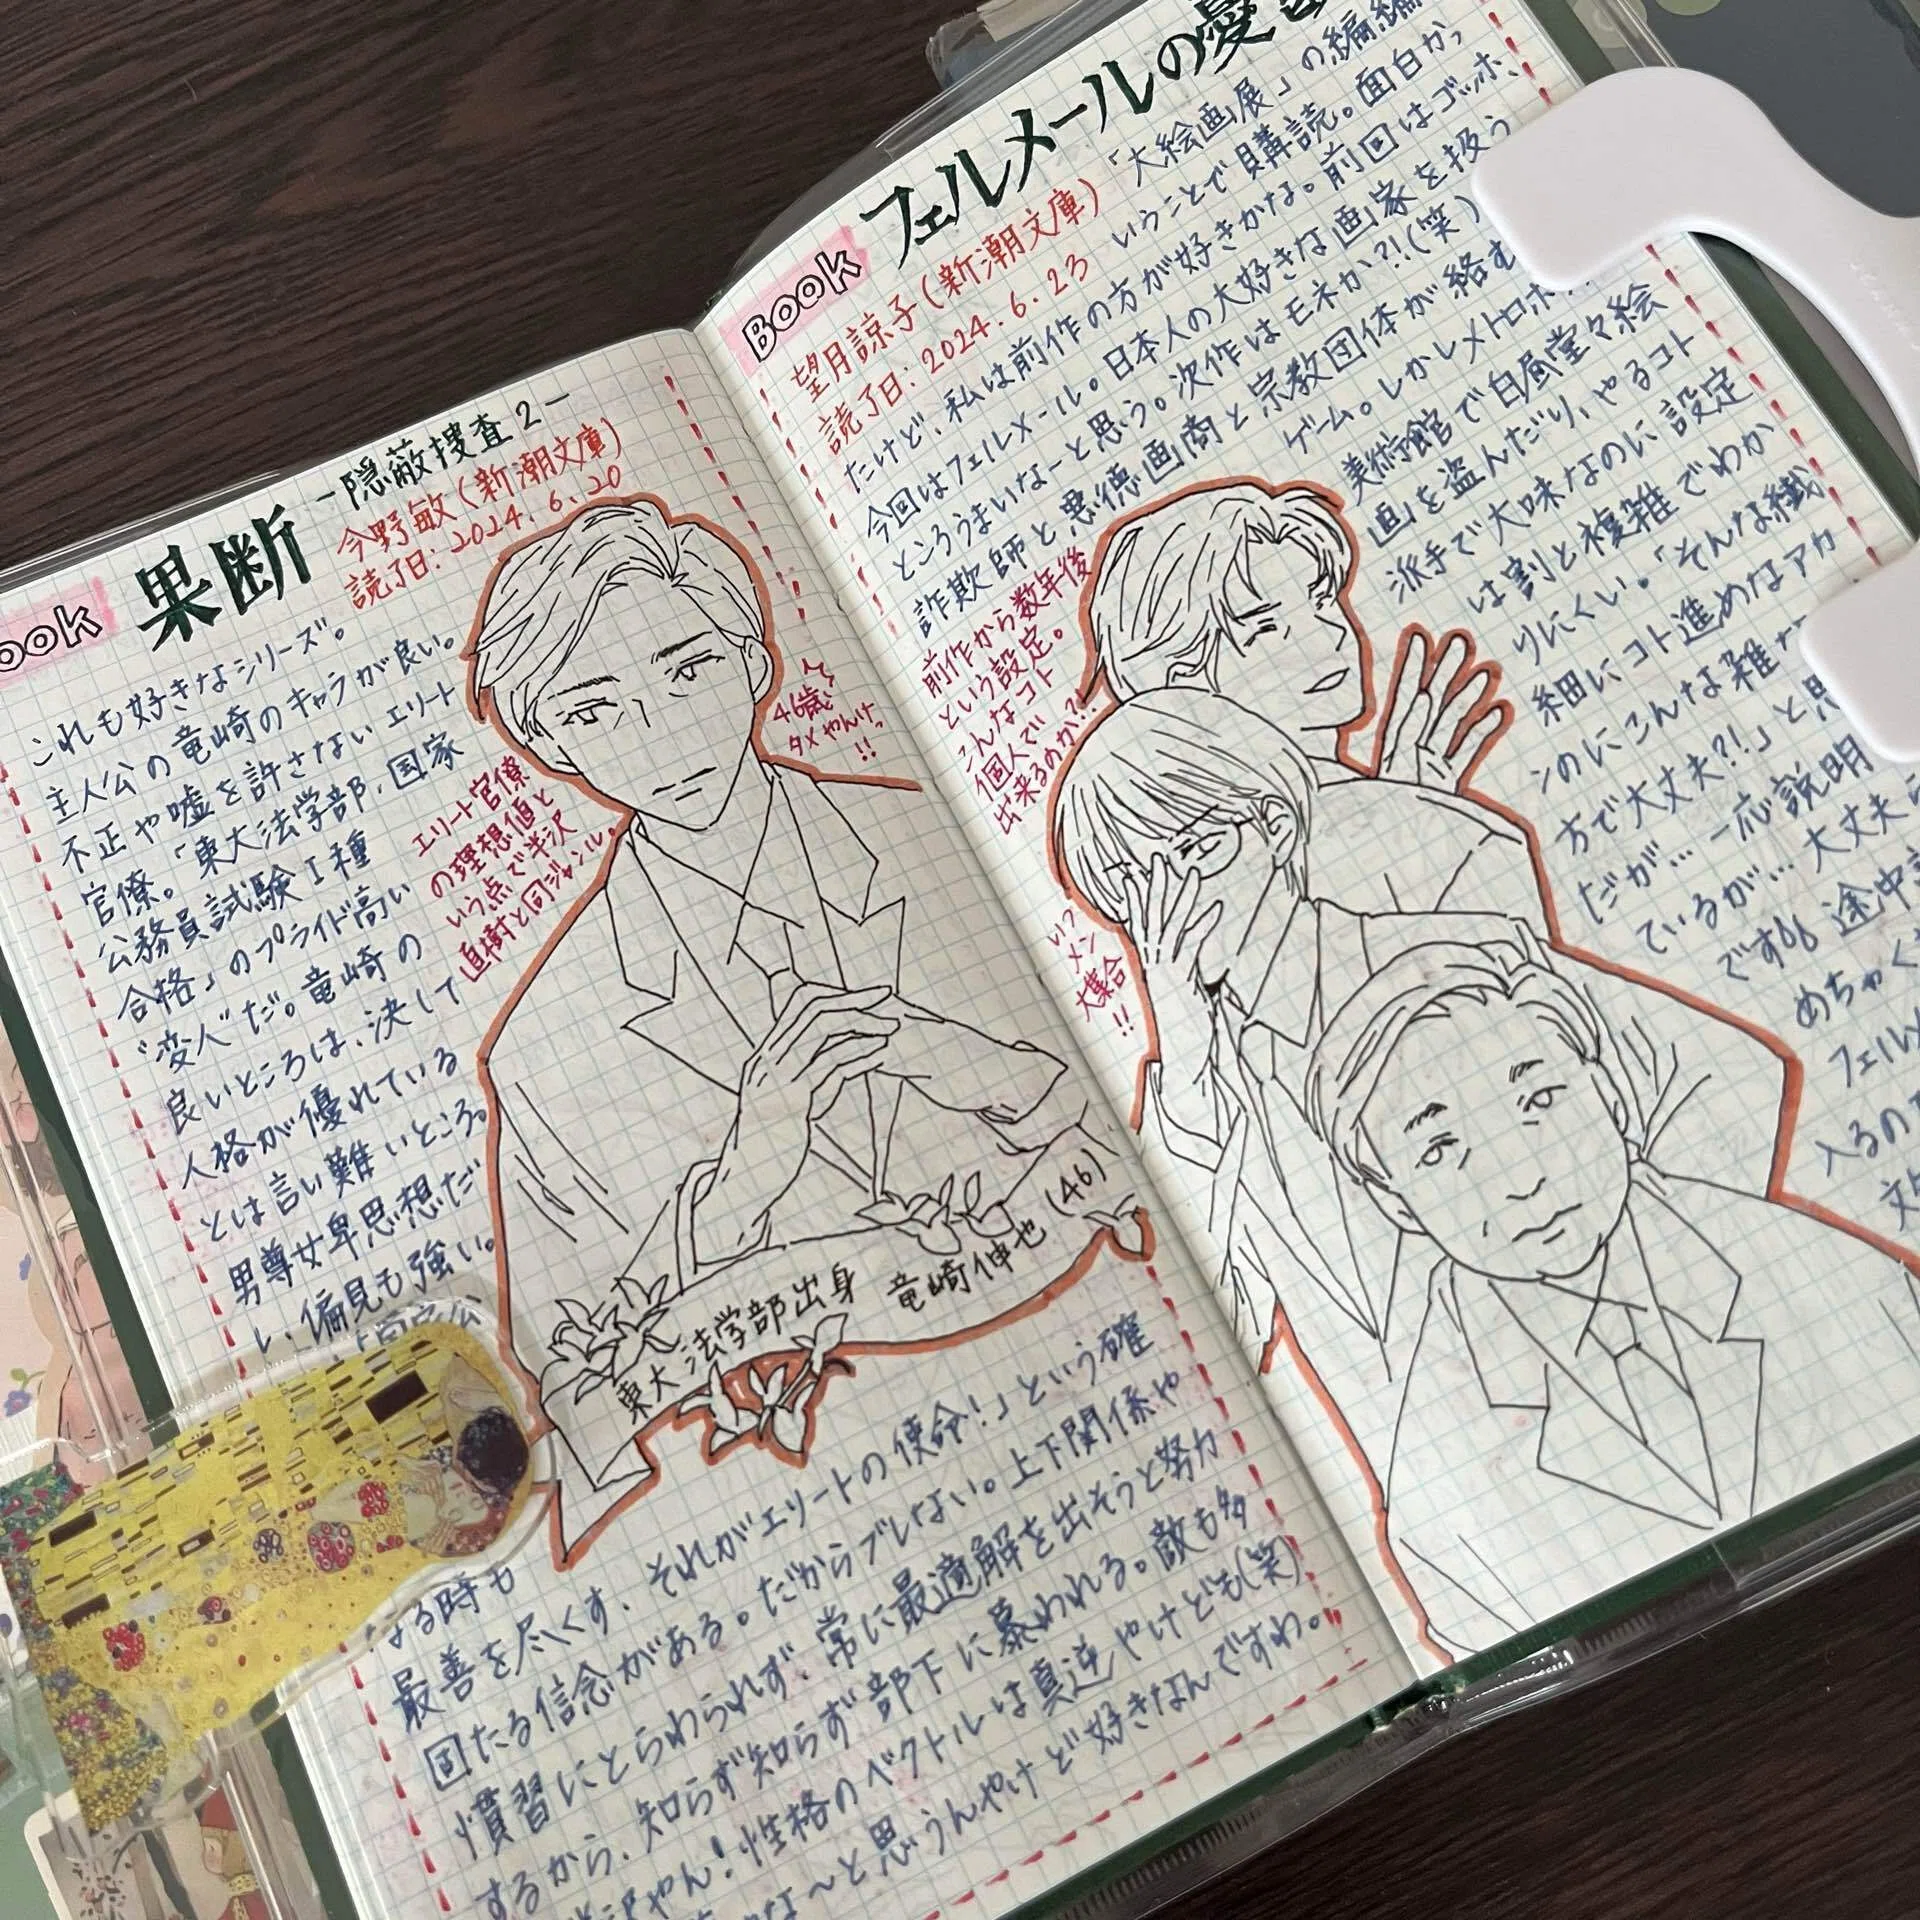 Book
果断
-隠蔽捜査2-
今野敏(新潮文庫)
読了日:2024.6.20
これも好きなシリーズ。
主人公の竜崎のキャラが良い。
不正や嘘を許さないエリート
官僚。「東大法学部、国家
公務員試験Ⅰ種
合格」のプライド高い
"変人"だ。竜崎の
良いところは、決して
人格が優れている
とは言い難いところ。
男尊女卑思想だ
し、偏見も強い。
エリート官僚
の理想値と
いう点で半沢
直樹と同ジャンル。
46歳
タメやんけっ
!!
東大法学部出身 竜崎伸也(46)
なる時も
最善を尽くす、それがエリートの使命!」という確
固たる信念がある。だからブレない。上下関係や
慣習にとらわられず、常に最適解を出そうと努力
するから、知らず知らず部下に慕われる。敵も多
やん!性格のベクトルは真逆やけども(笑)
な～と思うんやけど好きなんですわ。
Book
フェルメールの憂
望月諒子(新潮文庫)
読了日:2024.6.23
「大絵画展」の編
いうことで購読。面白かっ
たけど、私は前作の方が好きかな。前回はゴッホ、
今回はフェルメール。日本人の大好きな画家を扱う
ところうまいなーと思う。次作はモネか?!(笑)
詐欺師と悪徳画商と宗教団体が絡む
ゲーム。しかしメトロポ
美術館で白昼堂々絵
画を盗んだり、やるコト
派手で大味なのに設定
は割と複雑でわか
りにくい。「そんな繊
細にコト進めなアカ
ンのにこんな雑な
方で大丈夫?!」と思
だが…一応説明
ているが…大丈夫
です 途中
めちゃく
フェルメ
入るの
前作から数年後
という設定。
こんなコト
個人で
出来るのか?!
いつ
メン
大集合
!!